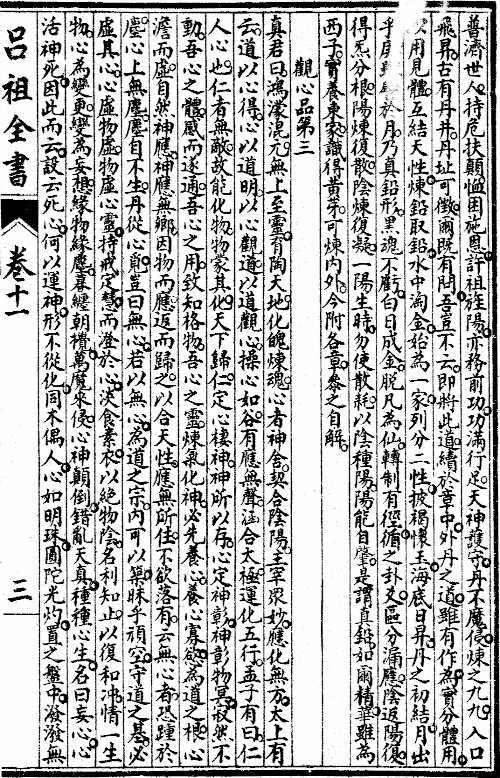 普濟世人持危扶顛恤困施恩許祖旌陽亦務前功功滿行足天神護守丹不魔侵煉之九九入口
飛昇古有丹井丹址可徵爾既有問吾豈不云即將此道續於章中外丹之道雖有作為實分體用
以用見體互結天性煉鉛取鉛水中淘金始為一家列分二性披褐懷玉海底日昇丹之初結月出
乎庚於月乃真鉛形黑魂不虧白日成金脫凡為仙轉制有徑循之卦爻區分漏應陰返陽復
得炁分根陽煉復散陰煉復凝一陽生時勿使散耗以陰種陽陽能自肇是謂真鉛如爾精華雖為
西子實養東家識得黃茅可煉內外今附各章參之自解
觀心品第三
真君曰鴻濛混元無上至靈育陶天地化醜煉魂心者神舍契合陰陽主宰眾妙應化無方太上有
云道以心得心以道明以心觀道以道觀心操心如谷有應無聲涵合太極運化五行孟子有曰仁
人心也仁者無敵故能化物物蒙其化天下歸仁定心棲神神所以存心定神彰神彰物冥寂然不
動吾心之體感而遂通吾心之用致知格物吾心之靈煉氣化神必先養心養心寡欲為道之梗心
澹而虛自然神應神應無鄉因物而應返而歸之以合天性應無所住不欲落有云無心者恐踵於
塵心上無塵塵自不生丹從心覓豈曰無心若以無心為道之宗內可以藥昧乎頑空守道之基必
虛其心心虛物虛物虛心靈持戒定慧而澄於心淡食素衣以絕物陰名利知止以復和沖情一生
物心為變更變為妄想緣物緣塵暮纏朝攪萬魔來侵心神顛倒錯亂天真種種心生名曰妄心心
活神死因此而云設云死心何以運神形不從化同木偶人心如明珠圓陀光灼置之盤中潑潑無
呂祖全書
卷十一
三